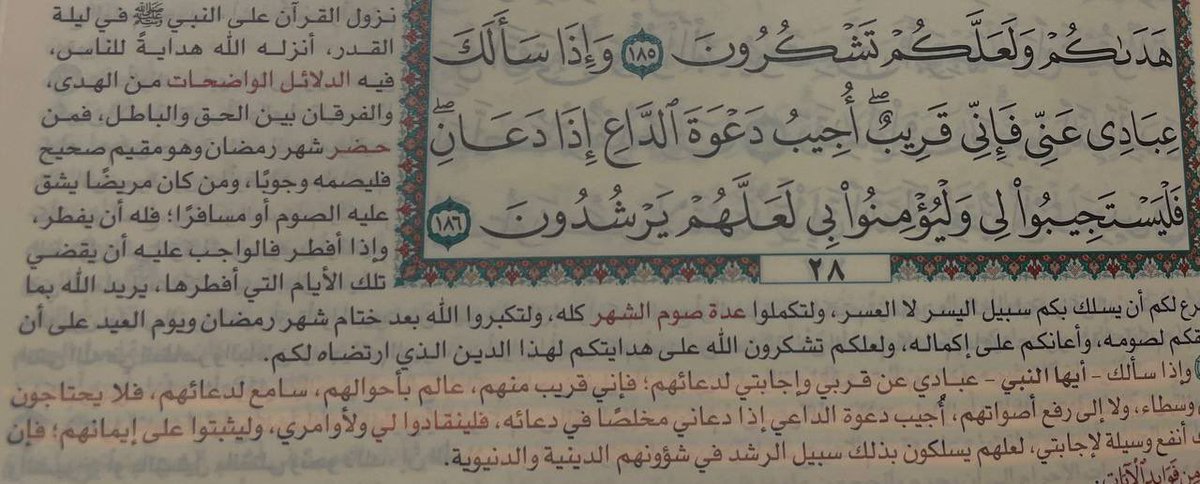 هَدَىٰكُمْ وَلَعَلَّكُمْ تَشْكُرُونَ ١٨٥ وَإِذَا سَأَلَكَ
عِبَادِى عَنِّى فَإِنِّى قَرِيبٌۖ أُجِيبُ دَعْوَةَ ٱلدَّاعِ إِذَا دَعَانِۖ
فَلْيَسْتَجِيبُوا۟ لِى وَلْيُؤْمِنُوا۟ بِى لَعَلَّهُمْ يَرْشُدُونَ ١٨٦
٢٨
نزول القرآن على النبي ﷺ في ليلة
القدر، أنزله الله هدايةً للناس،
فيه الدلائل الواضحات من الهدى،
والفرقان بين الحق والباطل، فمن
حضر شهر رمضان وهو مقيم صحيح
فليصمه وجوبًا، ومن كان مريضًا يشق
عليه الصوم أو مسافرًا؛ فله أن يفطر،
وإذا أفطر فالواجب عليه أن يقضي
تلك الأيام التي أفطرها، يريد الله بما
لكم أن يسلك بكم سبيل اليسر لا العسر، ولتكملوا عدة صوم الشهر كله، ولتكبروا الله بعد ختام شهر رمضان ويوم العيد على أن
لصومه، وأعانكم على إكماله، ولعلكم تشكرون الله على هدايتكم لهذا الدين الذي ارتضاه لكم.
وإذا سألك - أيها النبي - عبادي عن قربي وإجابتي لدعائهم؛ فإني قريب منهم، عالم بأحوالهم، سامع لدعائهم، فلا يحتاجون
وسطاء، ولا إلى رفع أصواتهم، أُجيب دعوة الداعي إذا دعاني مخلصًا في دعائه، فلينقادوا لي ولأوامري، وليثبتوا على إيمانهم؛ فإن
أنفع وسيلة لإجابتي، لعلهم يسلكون بذلك سبيل الرشد في شؤونهم الدينية والدنيوية.
من فوائد الآيات: